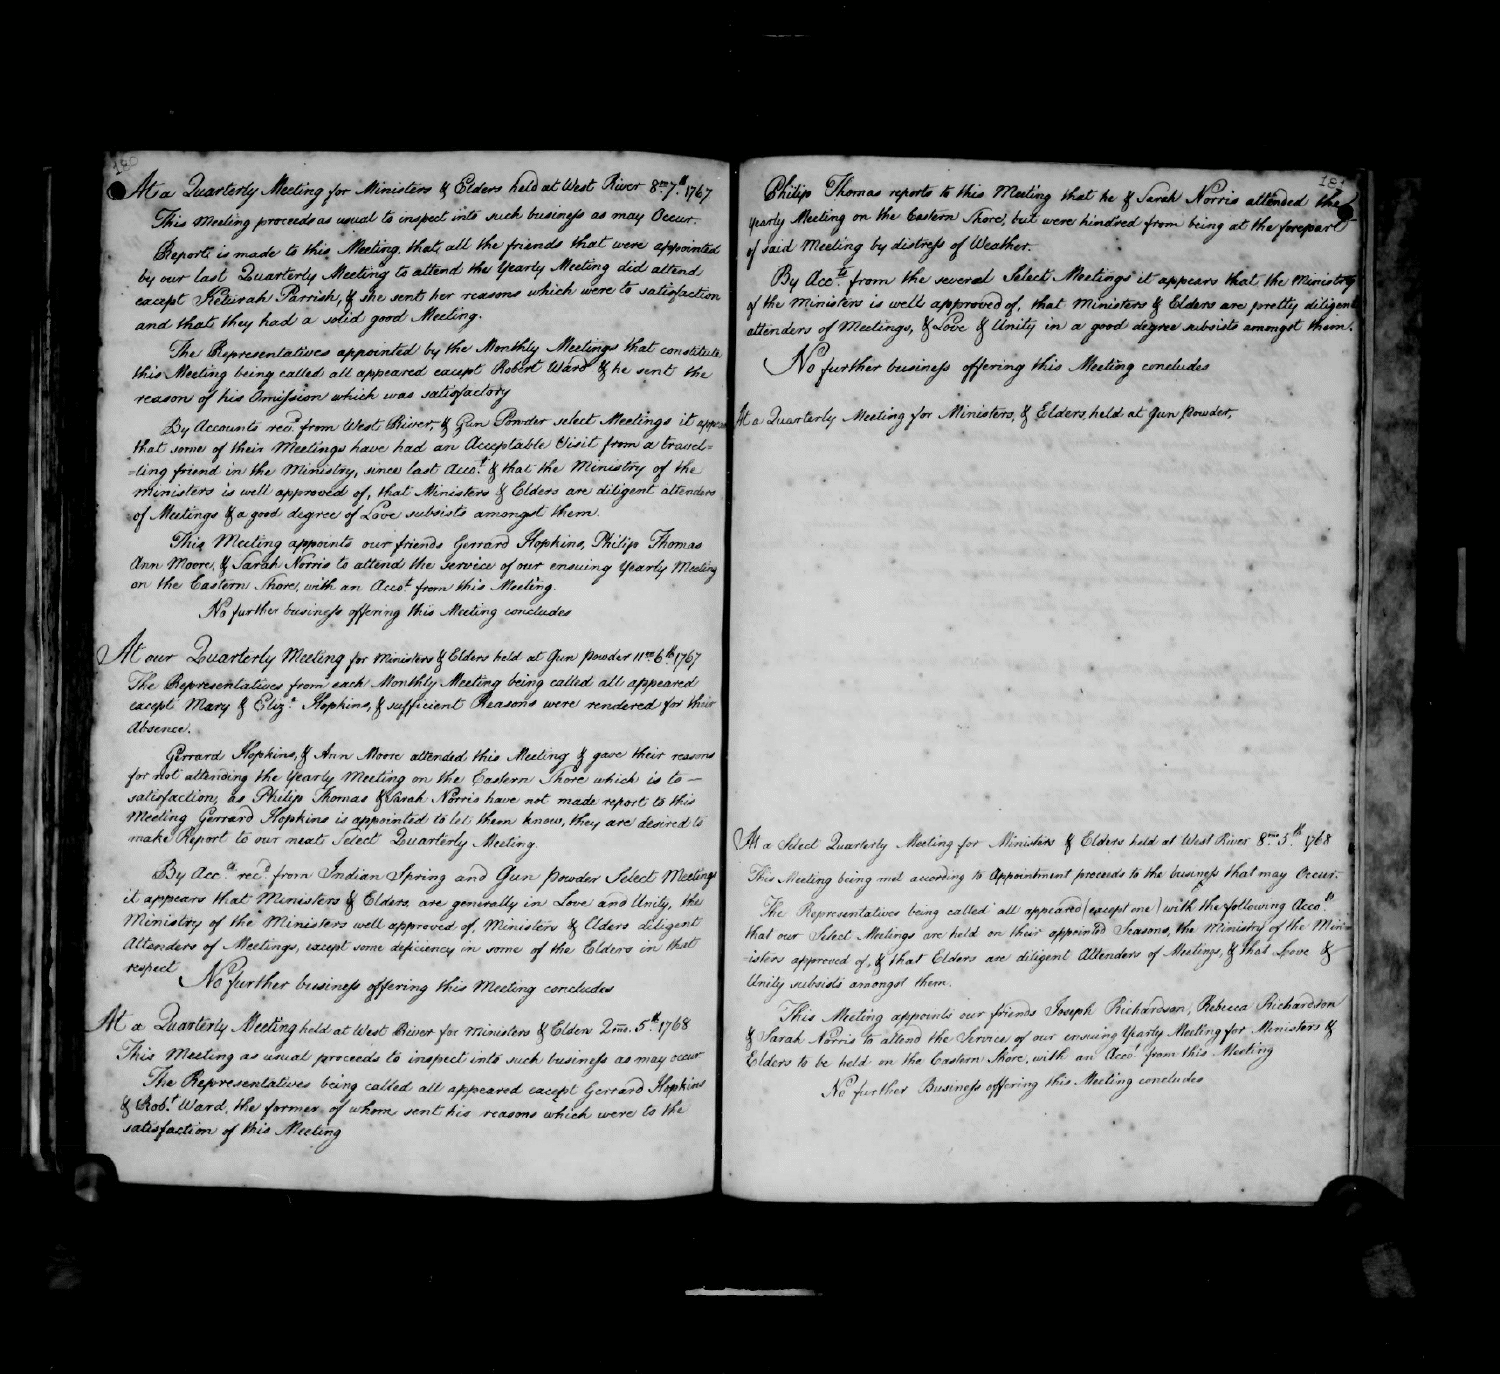 180
At a Quarterly Meeting for Ministers & Elders held at West River 8mo. 7th. 1767
This Meeting proceeds as usual to inspect into such business as may Occur.
Report is made to this Meeting, that all the friends that were appointed
by our last Quarterly Meeting to attend the Yearly Meeting did attend
except Keturah Parrish, & she sent her reasons which were to satisfaction
and that they had a solid good Meeting.
The Representatives appointed by the Monthly Meetings that constitute
this Meeting being called all appeared except Robert Ward & he sent the
reason of his Omission which was satisfactory
By Accounts recd. from West River, & Gun Powder select Meetings it appears
that some of their Meetings have had an Acceptable Visit from a travel=
=ling friend in the Ministry, since last Acct. & that the Ministry of the
Ministers is well approved of, that Ministers & Elders are diligent attenders
of Meetings & a good degree of Love subsists amongst them.
This Meeting appoints our friends Gerrard Hopkins, Philip Thomas
Ann Moore, & Sarah Norris to attend the service of our ensuing Yearly Meeting
on the Eastern Shore, with an Acct. from this Meeting.
No further business offering this Meeting concludes
At our Quarterly Meeting for Ministers & Elders held at Gun Powder 11mo 6th 1767
The Representatives from each Monthly Meeting being called all appeared
except Mary & Eliza. Hopkins, & sufficient Reasons were rendered for their
Absence.
Gerrard Hopkins, & Ann Moore attended this Meeting & gave their reasons
for not attending the Yearly Meeting on the Eastern Shore which is to —
satisfaction, as Philip Thomas & Sarah Norris have not made report to this
Meeting Gerrard Hopkins is appointed to let them know, they are desired to
make Report to our next Select Quarterly Meeting.
By Accts. recd. from Indian Spring and Gun Powder Select Meetings
it appears that Ministers & Elders, are generally in Love and Unity, the
Ministry of the Ministers well approved of, Ministers & Elders diligent
Attenders of Meetings, except some deficiency in some of the Elders in that
respect No further business offering this Meeting concludes
At a Quarterly Meeting held at West River for Ministers & Elders 2mo. 5th. 1768
This Meeting as usual proceeds to inspect into such business as may occur
The Representatives being called all appeared except Gerrard Hopkins
& Robt. Ward, the former of whom sent his reasons which were to the
satisfaction of this Meeting
Philip Thomas reports to this Meeting that he & Sarah Norris attended the
Yearly Meeting on the Eastern Shore, but were hindred from being at the forepart
of said Meeting by distress of Weather.
By Accts. from the several Select Meetings it appears that the Ministry
of the Ministers is well approved of, that Ministers & Elders are pretty diligent
attenders of Meetings, & Love & Unity in a good degree subsists amongst them.
No further business offering this Meeting concludes
At a Quarterly Meeting for Ministers, & Elders, held at Gun Powder,
At a Select Quarterly Meeting for Ministers & Elders held at West River 8mo. 5th. 1768
This Meeting being met according to Appointment proceeds to the business that may Occur.
The Representatives being called all appeared (except one) with the following Accots.
that our Select Meetings are held on their appointed Seasons, the Ministry of the Min=
=isters approved of, & that Elders are diligent Attenders of Meetings, & that Love &
Unity subsists amongst them.
This Meeting appoints our friends Joseph Richardson, Rebecca Richardson
& Sarah Norris to attend the Service of our ensuing Yearly Meeting for Ministers &
Elders to be held on the Eastern Shore, with an Accot. from this Meeting
No further Business offering this Meeting concludes